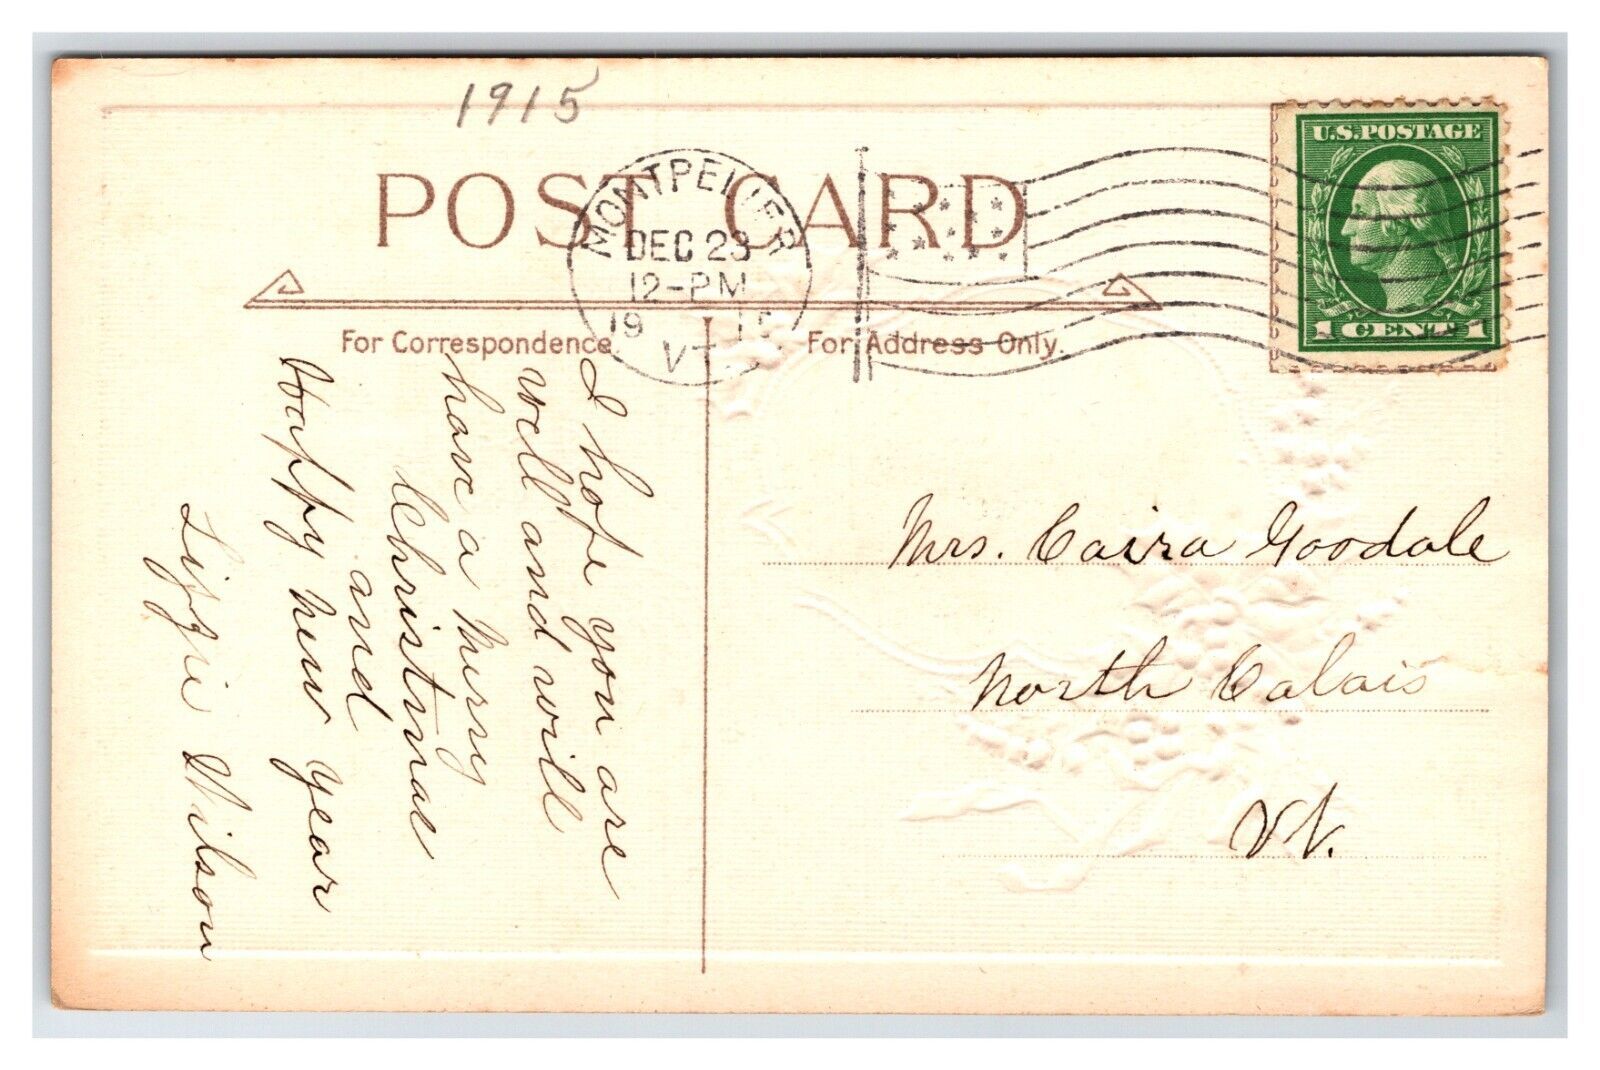 1915
POST CARD
MONTPELIER
DEC 23
12-PM
19 15
VT
U.S.POSTAGE
1 CENT 1
For Correspondence.
For Address Only.
I hope you are
well and will
have a merry
Christmas
and
Happy new year
Lizzie Wilson
Mrs. Caira Goodale
North Calais
Vt.